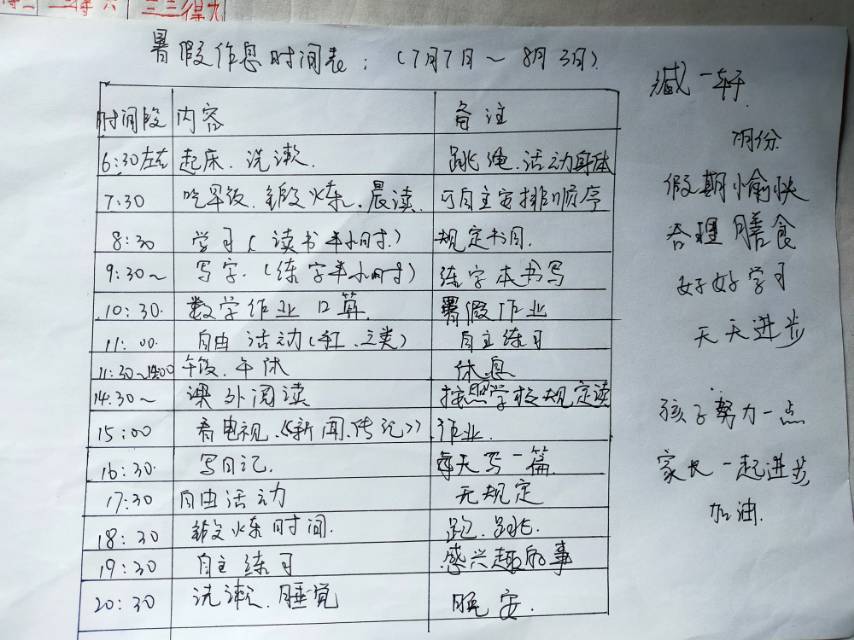 三三得九
暑假作息时间表：（7月7日～8月3日）
时间段 内容 备注
6:30左右 起床.洗漱. 跳绳.活动身体
7:30 吃早饭.锻炼.晨读. 可自主安排顺序
8:30 学习（读书半小时） 规定书目.
9:30～ 写字.（练字半小时） 练字本书写
10:30. 数学作业 口算. 暑假作业
11:00 自由活动( 自主练习
11:30～14:00 午饭.午休 休息
14:30～ 课外阅读 按照学校规定读
15:00 看电视.《新闻.传记》 作业.
16:30. 写日记. 每天写一篇.
17:30 自由活动 无规定
18:30 锻炼时间. 跑.跳.
19:30 自主练习 感兴趣的事
20:30 洗漱.睡觉 晚安.
臧一轩.
7月份
假期愉快
合理膳食
好好学习
天天进步
孩子努力一点
家长一起进步
加油.